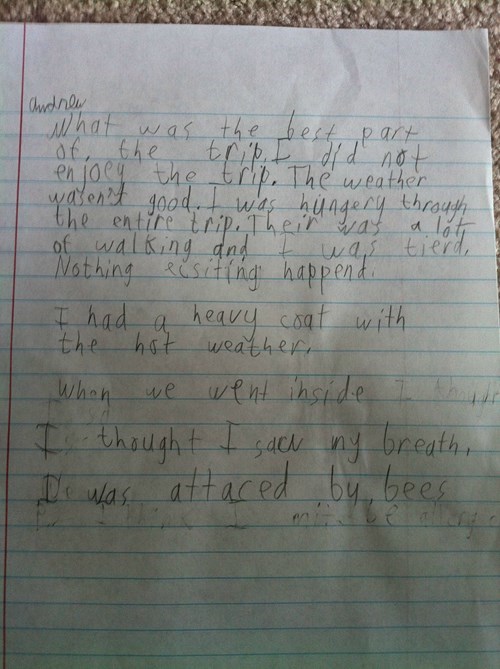 andrew
What was the best part
of, the trip. I did not
enjoey the trip. The weather
wasen't good. I was hungery through
the entire trip. Their was a lot
of walking and I was tierd.
Nothing ecsiting happend.
I had a heavy coat with
the hot weather.
When we went inside I
I thought I saw my breath.
I was attaced by bees
I mite be